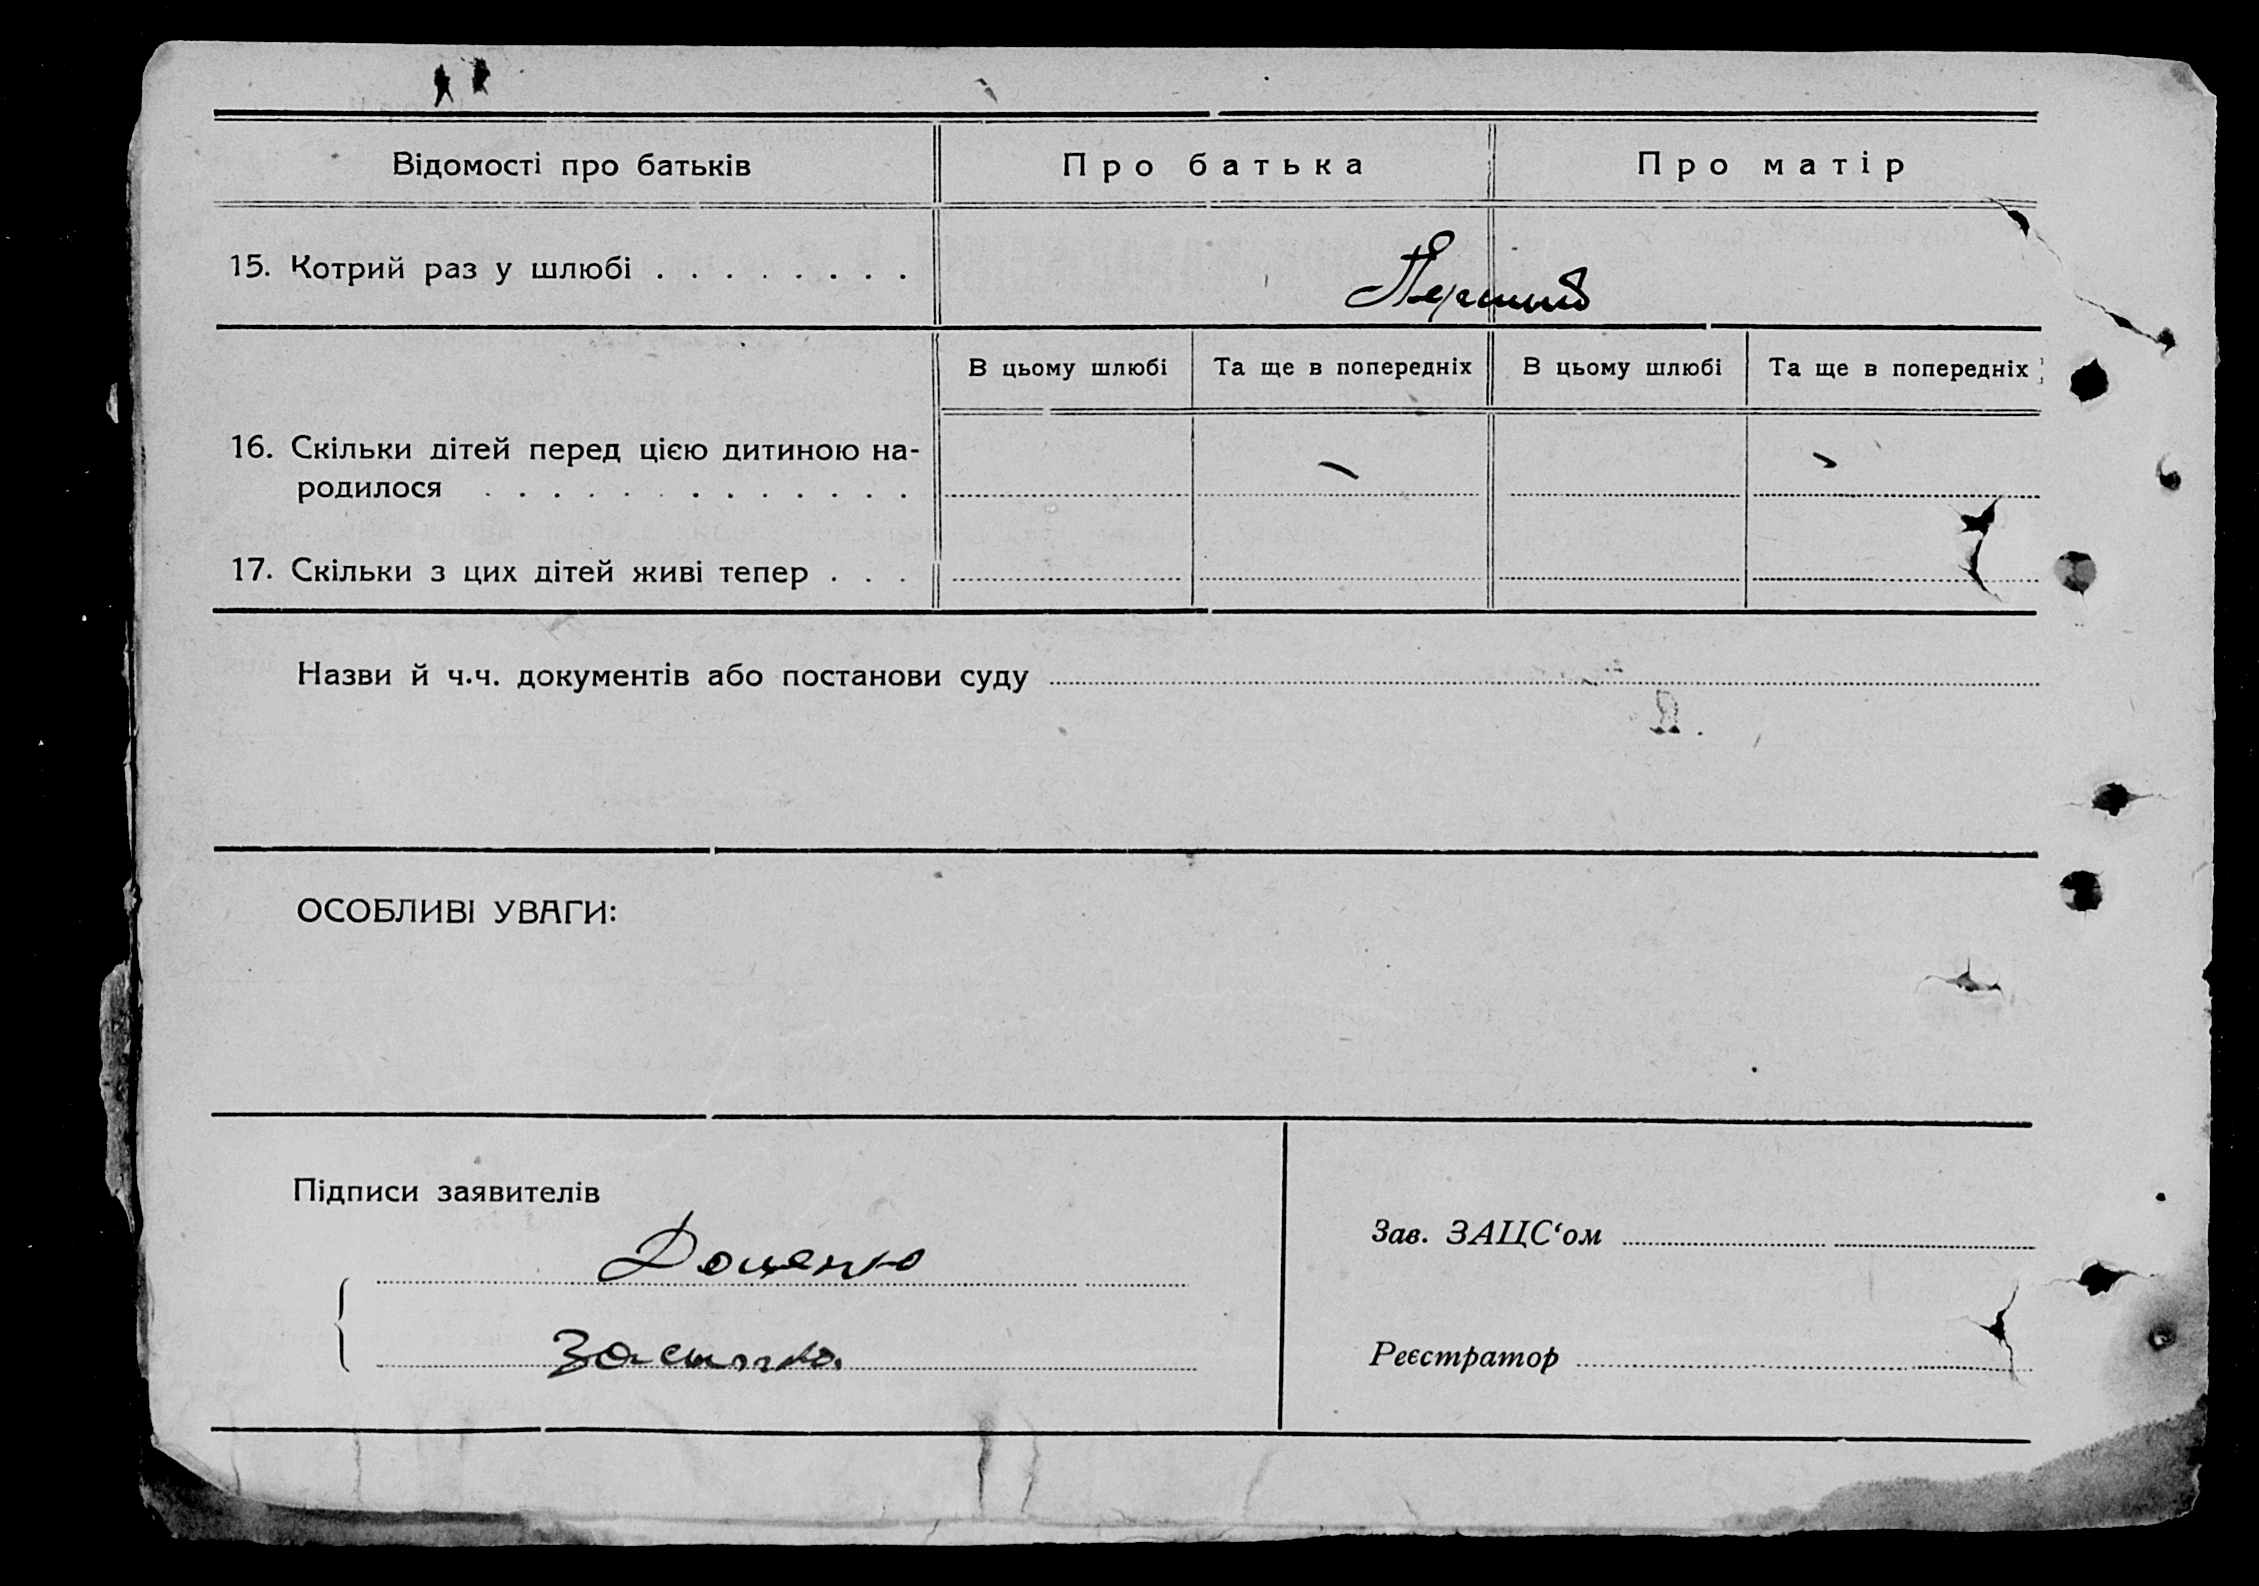 Відомості про батьків Про батька Про матір
15. Котрий раз у шлюбі . . . . . . . . Перший
В цьому шлюбі Та ще в попередніх В цьому шлюбі Та ще в попередніх
16. Скільки дітей перед цією дитиною на-
родилося . . . . . . . . . . . . .
17. Скільки з цих дітей живі тепер . . .
Назви й ч.ч. документів або постанови суду
ОСОБЛИВІ УВАГИ:
Підписи заявителів
Зав. ЗАЦС‘ом
Доценко
Реєстратор